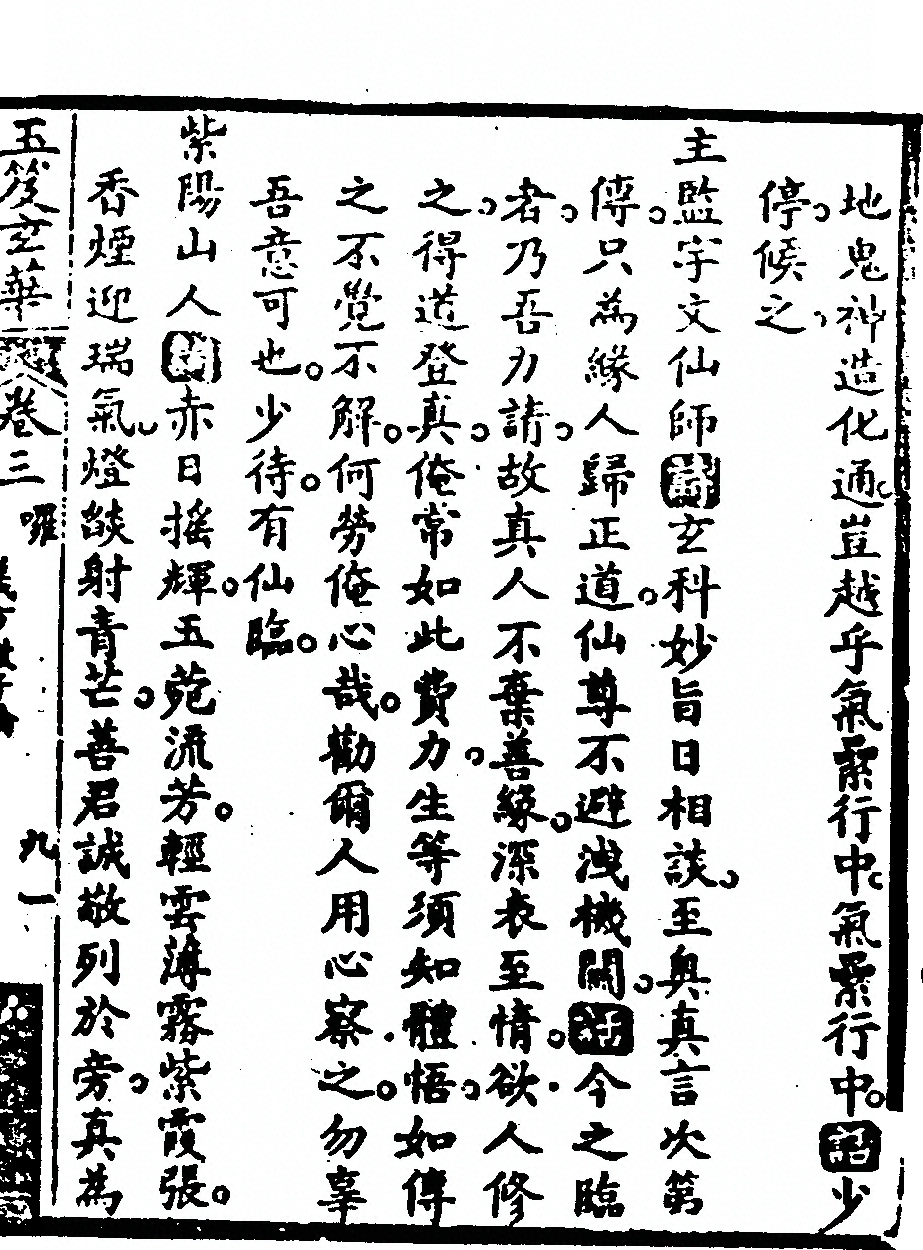 地鬼神造化通豈越乎氣彙行中氣彙行中話少
停候之
主監宇文仙師詩玄科妙旨日相談至奧真言次第
傳只為緣人歸正道仙尊不避洩機關話今之臨
者乃吾力請故真人不棄善緣深表至情欲人修
之得道登真俺常如此費力生等須知體悟如傳
之不覺不解何勞俺心哉勸爾人用心察之勿辜
吾意可也少待有仙臨
紫陽山人詩赤日搖輝玉苑流芳輕雲薄霧紫霞張
香煙迎瑞氣燈燄射青芒善君誠敬列於旁真為
玉笈玄華
卷三
囉
九一